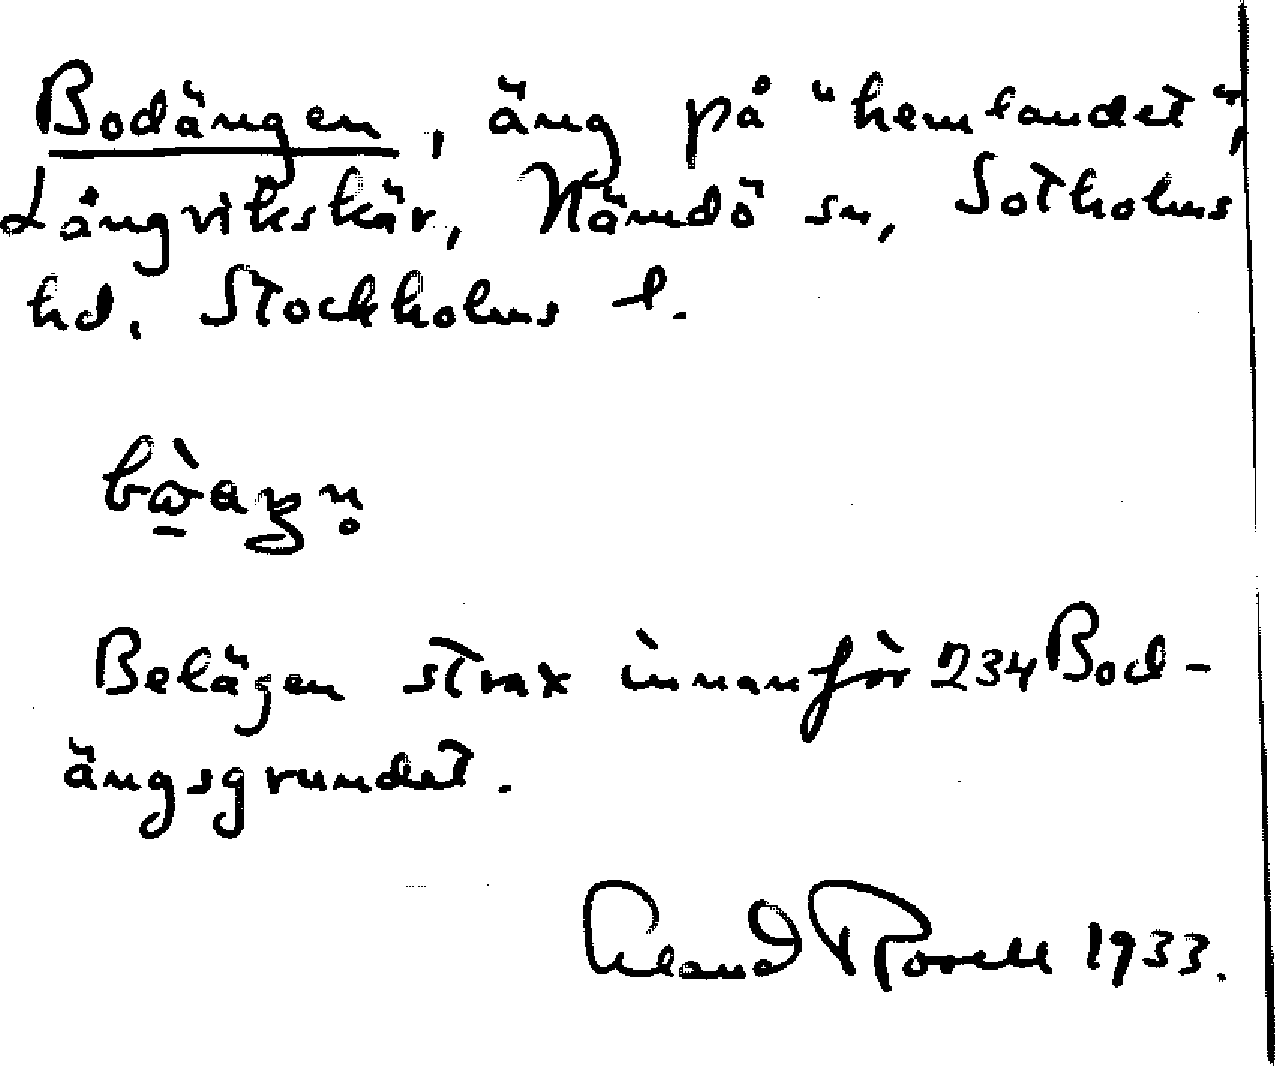 Bodängen, äng på "hemlandet",
Långvikskär, Nämdö sn, Sotholms
hd. Stockholms l.
Belägen strax innanför 234 Bod-
ängsgrundet.
1933.